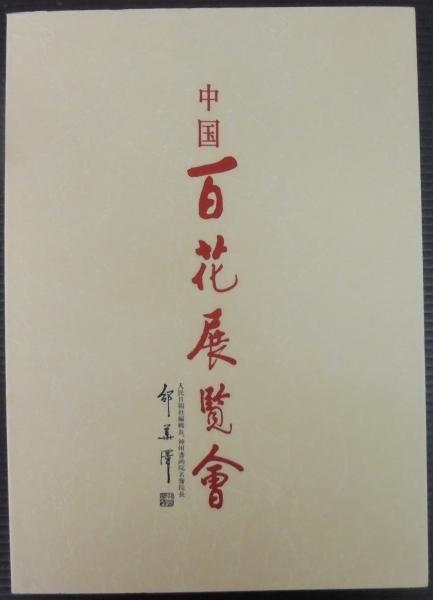 中国百花展覧會
人民日報社編輯長、神州書画院名誉院長
邵華澤